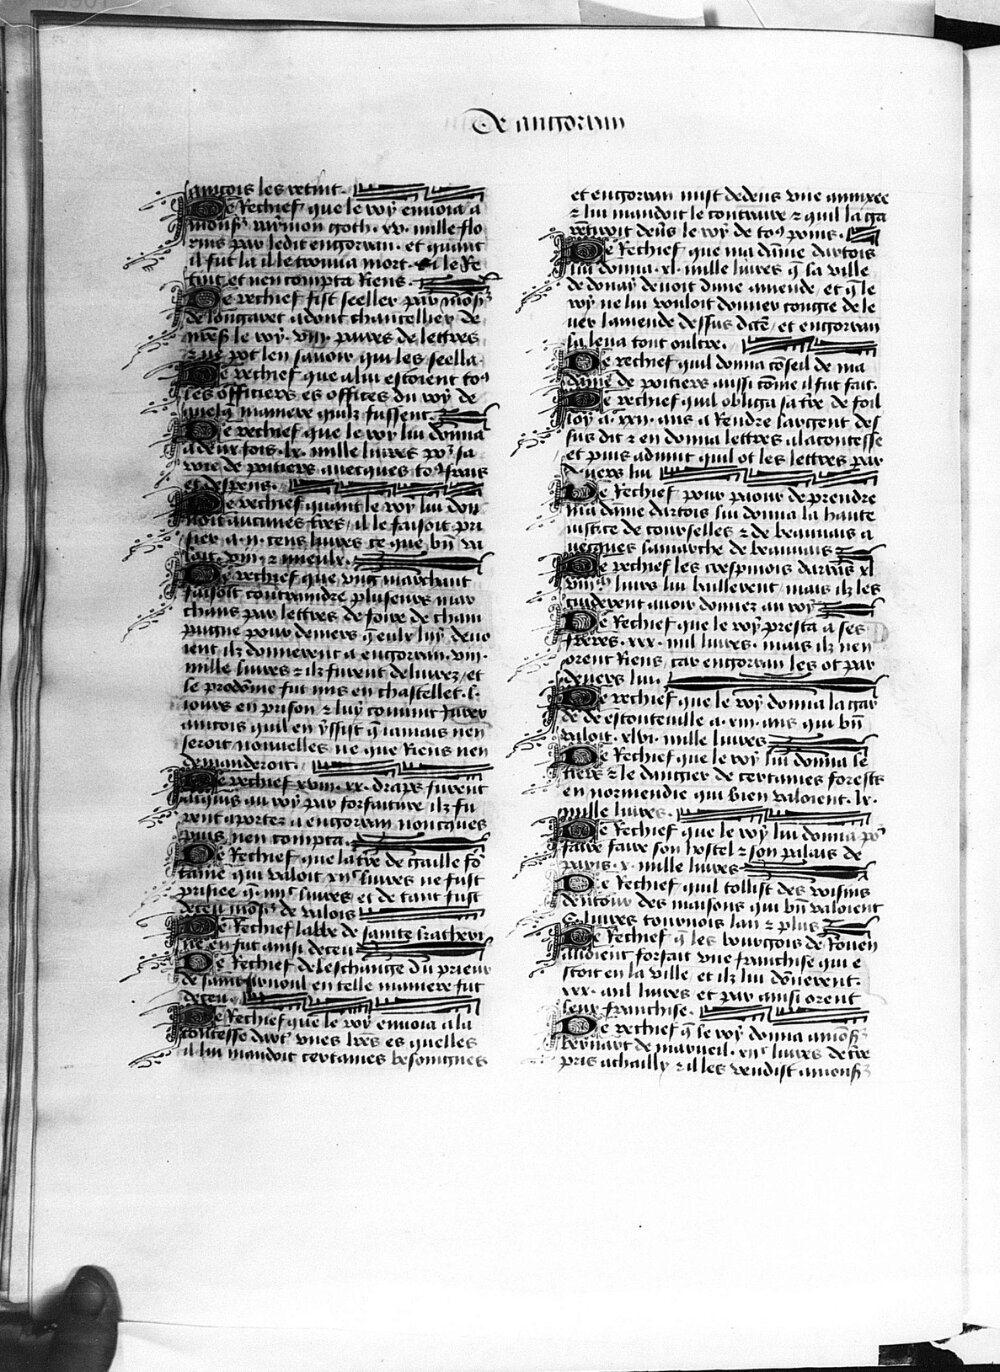 De angorran
ancois les retint.
De rechief que le roy envoia a
monsr raimon goth .xv. mille flo
rins par ledit engorran. et quant
il fut la il le trouva mort. et le re
tint et nen compta riens.
De rechief fist seeller par monsr
de longaret adont chancellier de
nr̄es le roy .viii. paires de lettres
et ne pot len savoir qui les seella.
De rechief que a lui estoient to9
les officiers es offices du roy de
quelq̄ maniere quilz fussent.
De rechief que le roy lui dōna
a deux fois .lx. mille livres por sa
voie de poitiers avecques to9 frais
et despens.
De rechief quant le roy lui don
noit aucunes tr̄es, il le faisoit pri
sier a .ii. cens livres ce que bn̄ va
loit .viii. et mieulx.
De rechief que ung marchant
faisoit contraindre plusieurs mar
chans par lettres de foire de cham
paigne pour deniers q̄ eulx luy devo
ient ilz donnerent a engorran .viii.
mille livres et ilz furent delivrez, et
le prodōme fut mis en chastellet .l.
jours en prison et luy convint jurer
ancois quil en yssist q̄ jamais nen
seroit nouvelles ne que riens nen
demanderoit.
De rechief xviii. xx. draps furent
acquis au roy par forfaiture ilz fu
rent aportez a engorran noncques
puis nen compta.
De rechief que la tr̄e de gaille fō
taine qui valoit xiic livres ne fust
prisiee q̄ iiiic livres et de tant fust
deceu monsr de valois
De rechief labbe de sainte katheri
ne en fut ainsi deceu
De rechief de leschange du prieur
de saint arnoul en telle maniere fut
deceu.
De rechief que le roy envoia a la
contesse dart' unes lr̄es es quelles
il lui mandoit certaines besoingnes
et engorran mist dedens une annexe
et lui mandoit le contraire et quil la ga
rentiroit dens le roy de to9 poins.
De rechief que ma dāme dartois
lui donna .xl. mille livres q̄ sa ville
de douay devoit dune amende. et q̄ le
roy ne lui vouloit donner congie de le
ver lamende dessus dicte, et engorran
la leva tout oultre.
De rechief quil donna cōseil de ma
dāme de poitiers aussi cōme il fut fait.
De rechief quil obliga sa tr̄e de foil
loy a .xxii. ans a rendre largent des
sus dit et en donna lettres a la contesse
et puis advint quil ot les lettres par
devers lui
De rechief pour paour de prendre
ma dāme dartois lui donna la haute
justice de courselles et de beauvais a
vecques la marche de beauvais
De rechief les crespinois darras xl
viiic livres lui baillerent, mais ilz les
cuiderent avoir donnez au roy
De rechief que le roy presta a ses
freres .xxx. mil livres. mais ilz nen
orent riens, car engorran les ot par
devers lui.
De rechief que le roy donna la gar
de de estouteville a .xiii. ans qui bn̄
valoit .xlvi. mille livres
De rechief que le roy lui donna le
tiers et le dangier de certaines forests
en normendie qui bien valoient .lx.
mille livres.
De rechief que le roy lui donna por
faire faire son hostel et son palais de
paris .x. mille livres
De rechief quil tollist des voisins
dentour des maisons qui bn̄ valoient
C livres tournois lan et plus
De rechief q̄ les bourgois de rouen
avoient forfait une franchise qui e
stoit en la ville et ilz lui dōnerent.
xxx. mil livres et par ainsi orent
leur franchise.
De rechief q̄ le roy donna a monsr
bernart de marueil .xiic livres de tr̄e
pris a chailly et il les vendist a monsr